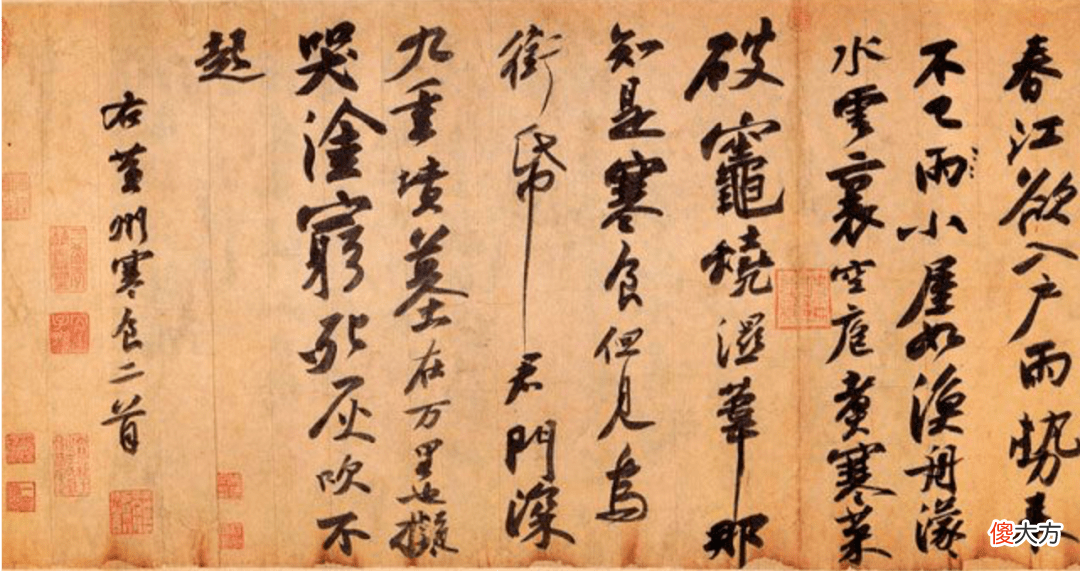 春江欲入户雨勢来
不已雨小屋如漁舟濛〻
水雲裏空庖煑寒菜
破竈燒濕葦那
知是寒食但見烏
銜帋君門深
九重墳墓在万里也擬
哭塗窮死灰吹不
起
右黄州寒食二首
傻大方